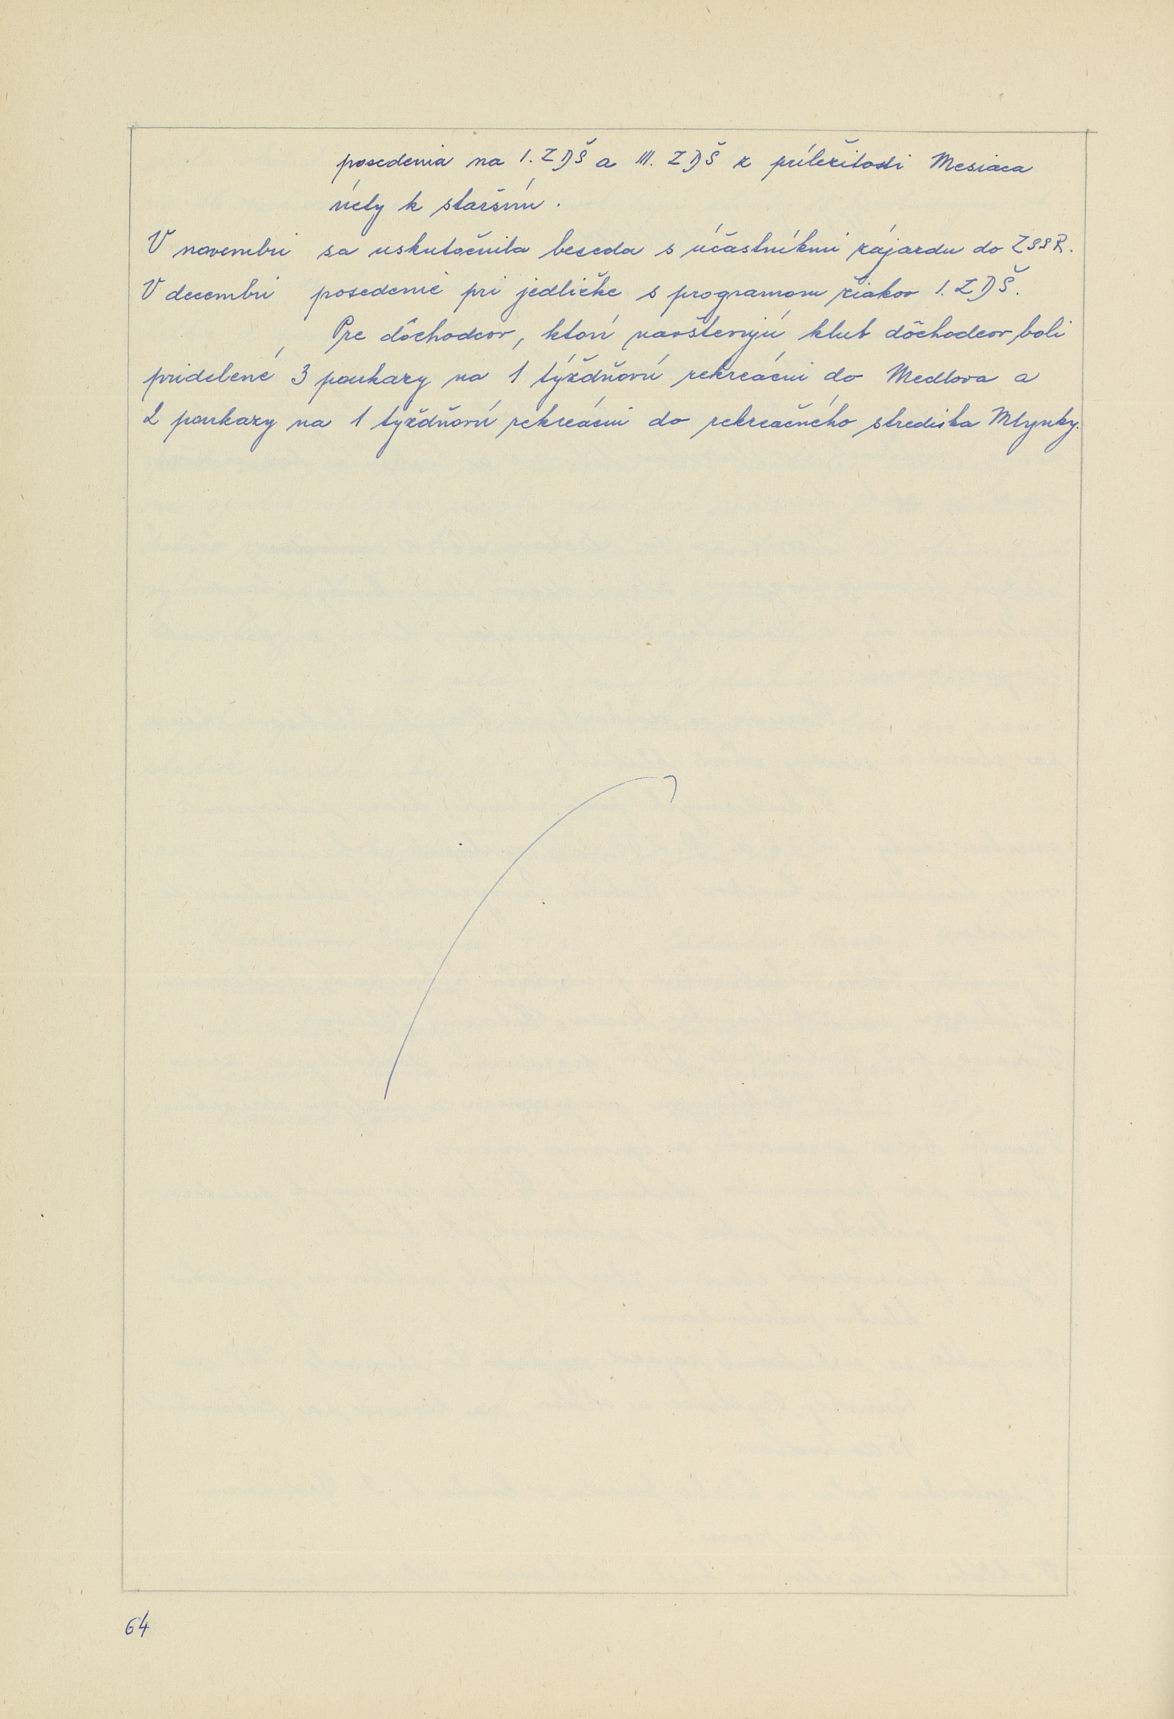 posedenia na I. ZDŠ a III. ZDŠ z príležitosti Mesiaca
úcty k starším.
V novembri sa uskutočnila beseda s účastníkmi zájazdu do ZSSR.
V decembri posedenie pri jedličke s programom žiakov I. ZDŠ.
Pre dôchodcov, ktorí navštevujú klub dôchodcov boli
pridelené 3 poukazy na 1 týždňovú rekreáciu do Medlova a
2 poukazy na 1 týždňovú rekreáciu do rekreačného strediska Mlynky.
64